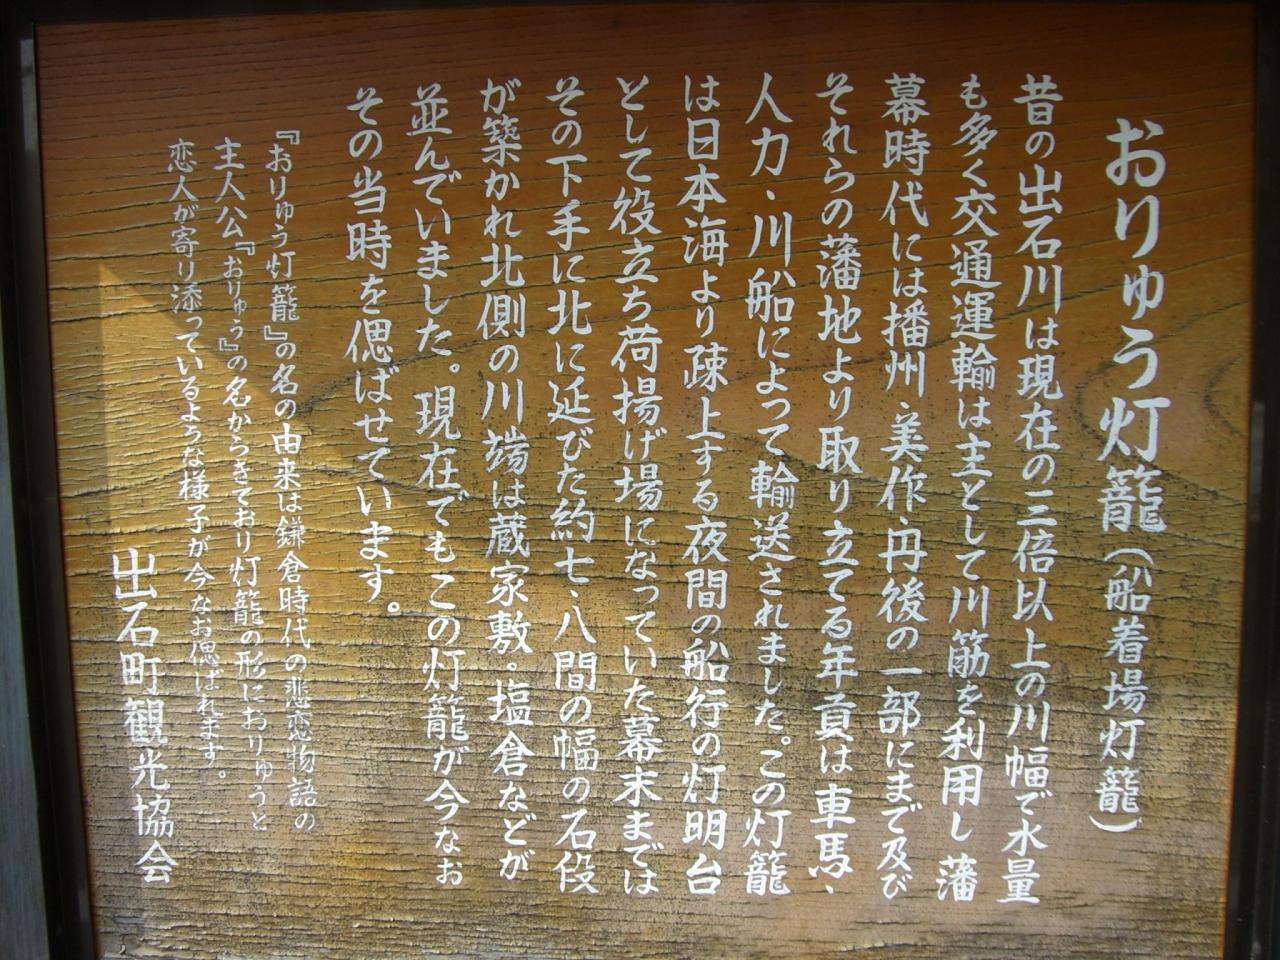 おりゅう灯籠(船着場灯籠)
昔の出石川は現在の三倍以上の川幅で水量
も多く交通運輸は主として川筋を利用し藩
幕時代には播州・美作・丹後の一部にまで及び
それらの藩地より取り立てる年貢は車馬、
人力・川船によって輸送されました。この灯籠
は日本海より疎上する夜間の船行の灯明台
として役立ち荷揚げ場になっていた幕末までは
その下手に北に延びた約七、八間の幅の石段
が築かれ北側の川端は蔵家敷。塩倉などが
並んでいました。現在でもこの灯籠が今なお
その当時を偲ばせています。
『おりゅう灯籠』の名の由来は鎌倉時代の悲恋物語の
主人公『おりゅう』の名からきており灯籠の形におりゅうと
恋人が寄り添っているような様子が今なお偲ばれます。
出石町観光協会